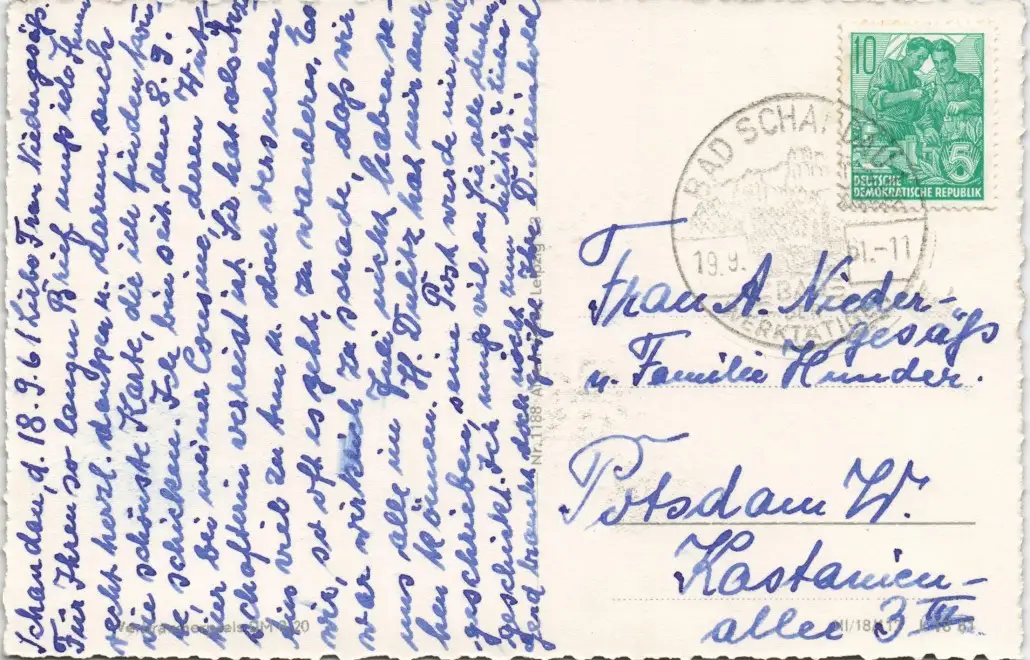 Schandau, d. 18.9.61 Liebe Frau Niedergesäß.
Für Ihren so langen Brief muß ich Ihnen
recht herzl. danken u. darum auch
die schönste Karte, die ich finden kön-
ne, schicken. Ich bin seit dem 8.9.
hier bei meiner Cousine, deren Wirt-
schafterin verreist ist. Sie hat also
viel zu tun u. doch versuchen
wir, so oft es geht, zu wandern. Es
war wirklich zu schade, daß wir
uns alle im Juli nicht haben se-
hen können. H. Dulitz hat mir auch
geschrieben, seine Post wurde mir nach-
geschickt. Ich muß viel an Sie alle denken.
Ihre D. Meinhold
Nr. 1188 Leipzig
BAD SCHANDAU
19.9.61.-11
WERKTÄTIGEN
10
5
DEUTSCHE
DEMOKRATISCHE REPUBLIK
Frau A. Nieder-
gesäß
u. Familie Hünder.
Potsdam W.
Kastanien-
allee 3 III.